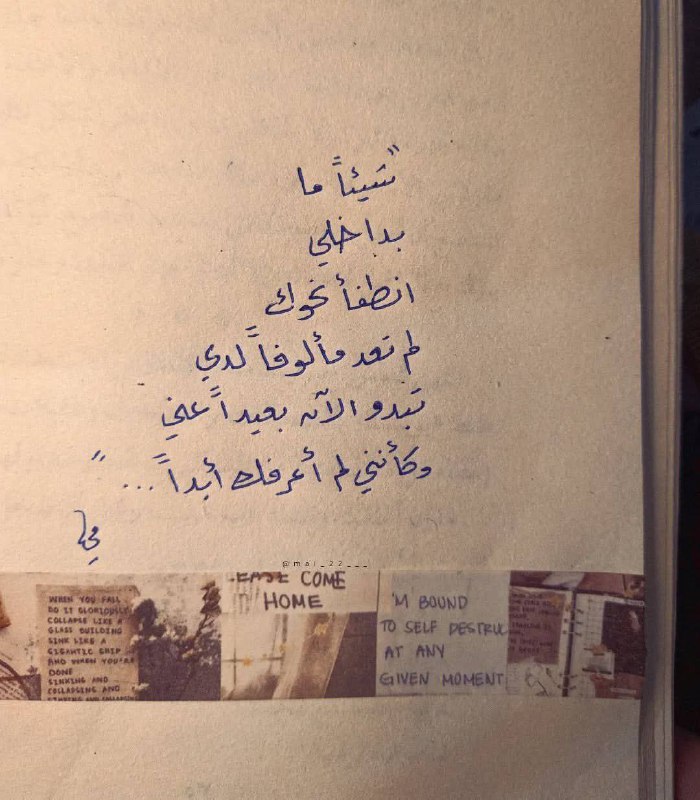 "شيئاً ما
بداخلي
انطفأ نحوك
لم تعد مألوفاً لدي
تبدو الآن بعيداً عني
وكأنني لم أعرفك أبداً ... "
مي
@mai_22___
WHEN YOU FALL
DO IT GLORIOUSLY
COLLAPSE LIKE A
GLASS BUILDING
SINK LIKE A
GIGANTIC SHIP
AND WHEN YOU'RE
DONE
SINKING AND
COLLAPSING AND
EASE COME
HOME
'M BOUND
TO SELF DESTRUC
AT ANY
GIVEN MOMENT